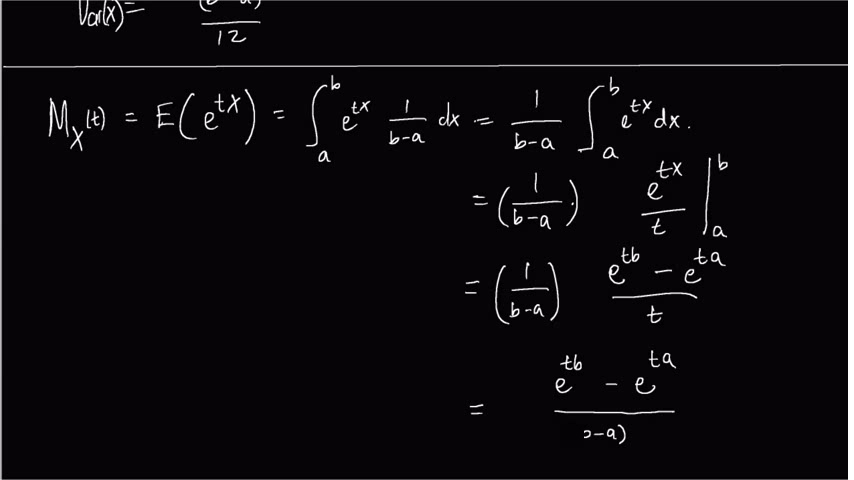 Var(x) = (e^2-a) / 12
M_X(t) = E(e^{tX}) = ∫_a^b e^{tx} 1/(b-a) dx = 1/(b-a) ∫_a^b e^{tx} dx.
= (1/(b-a)) e^{tx}/t |_a^b
= (1/(b-a)) (e^{tb} - e^{ta})/t
= (e^{tb} - e^{ta}) / -a)